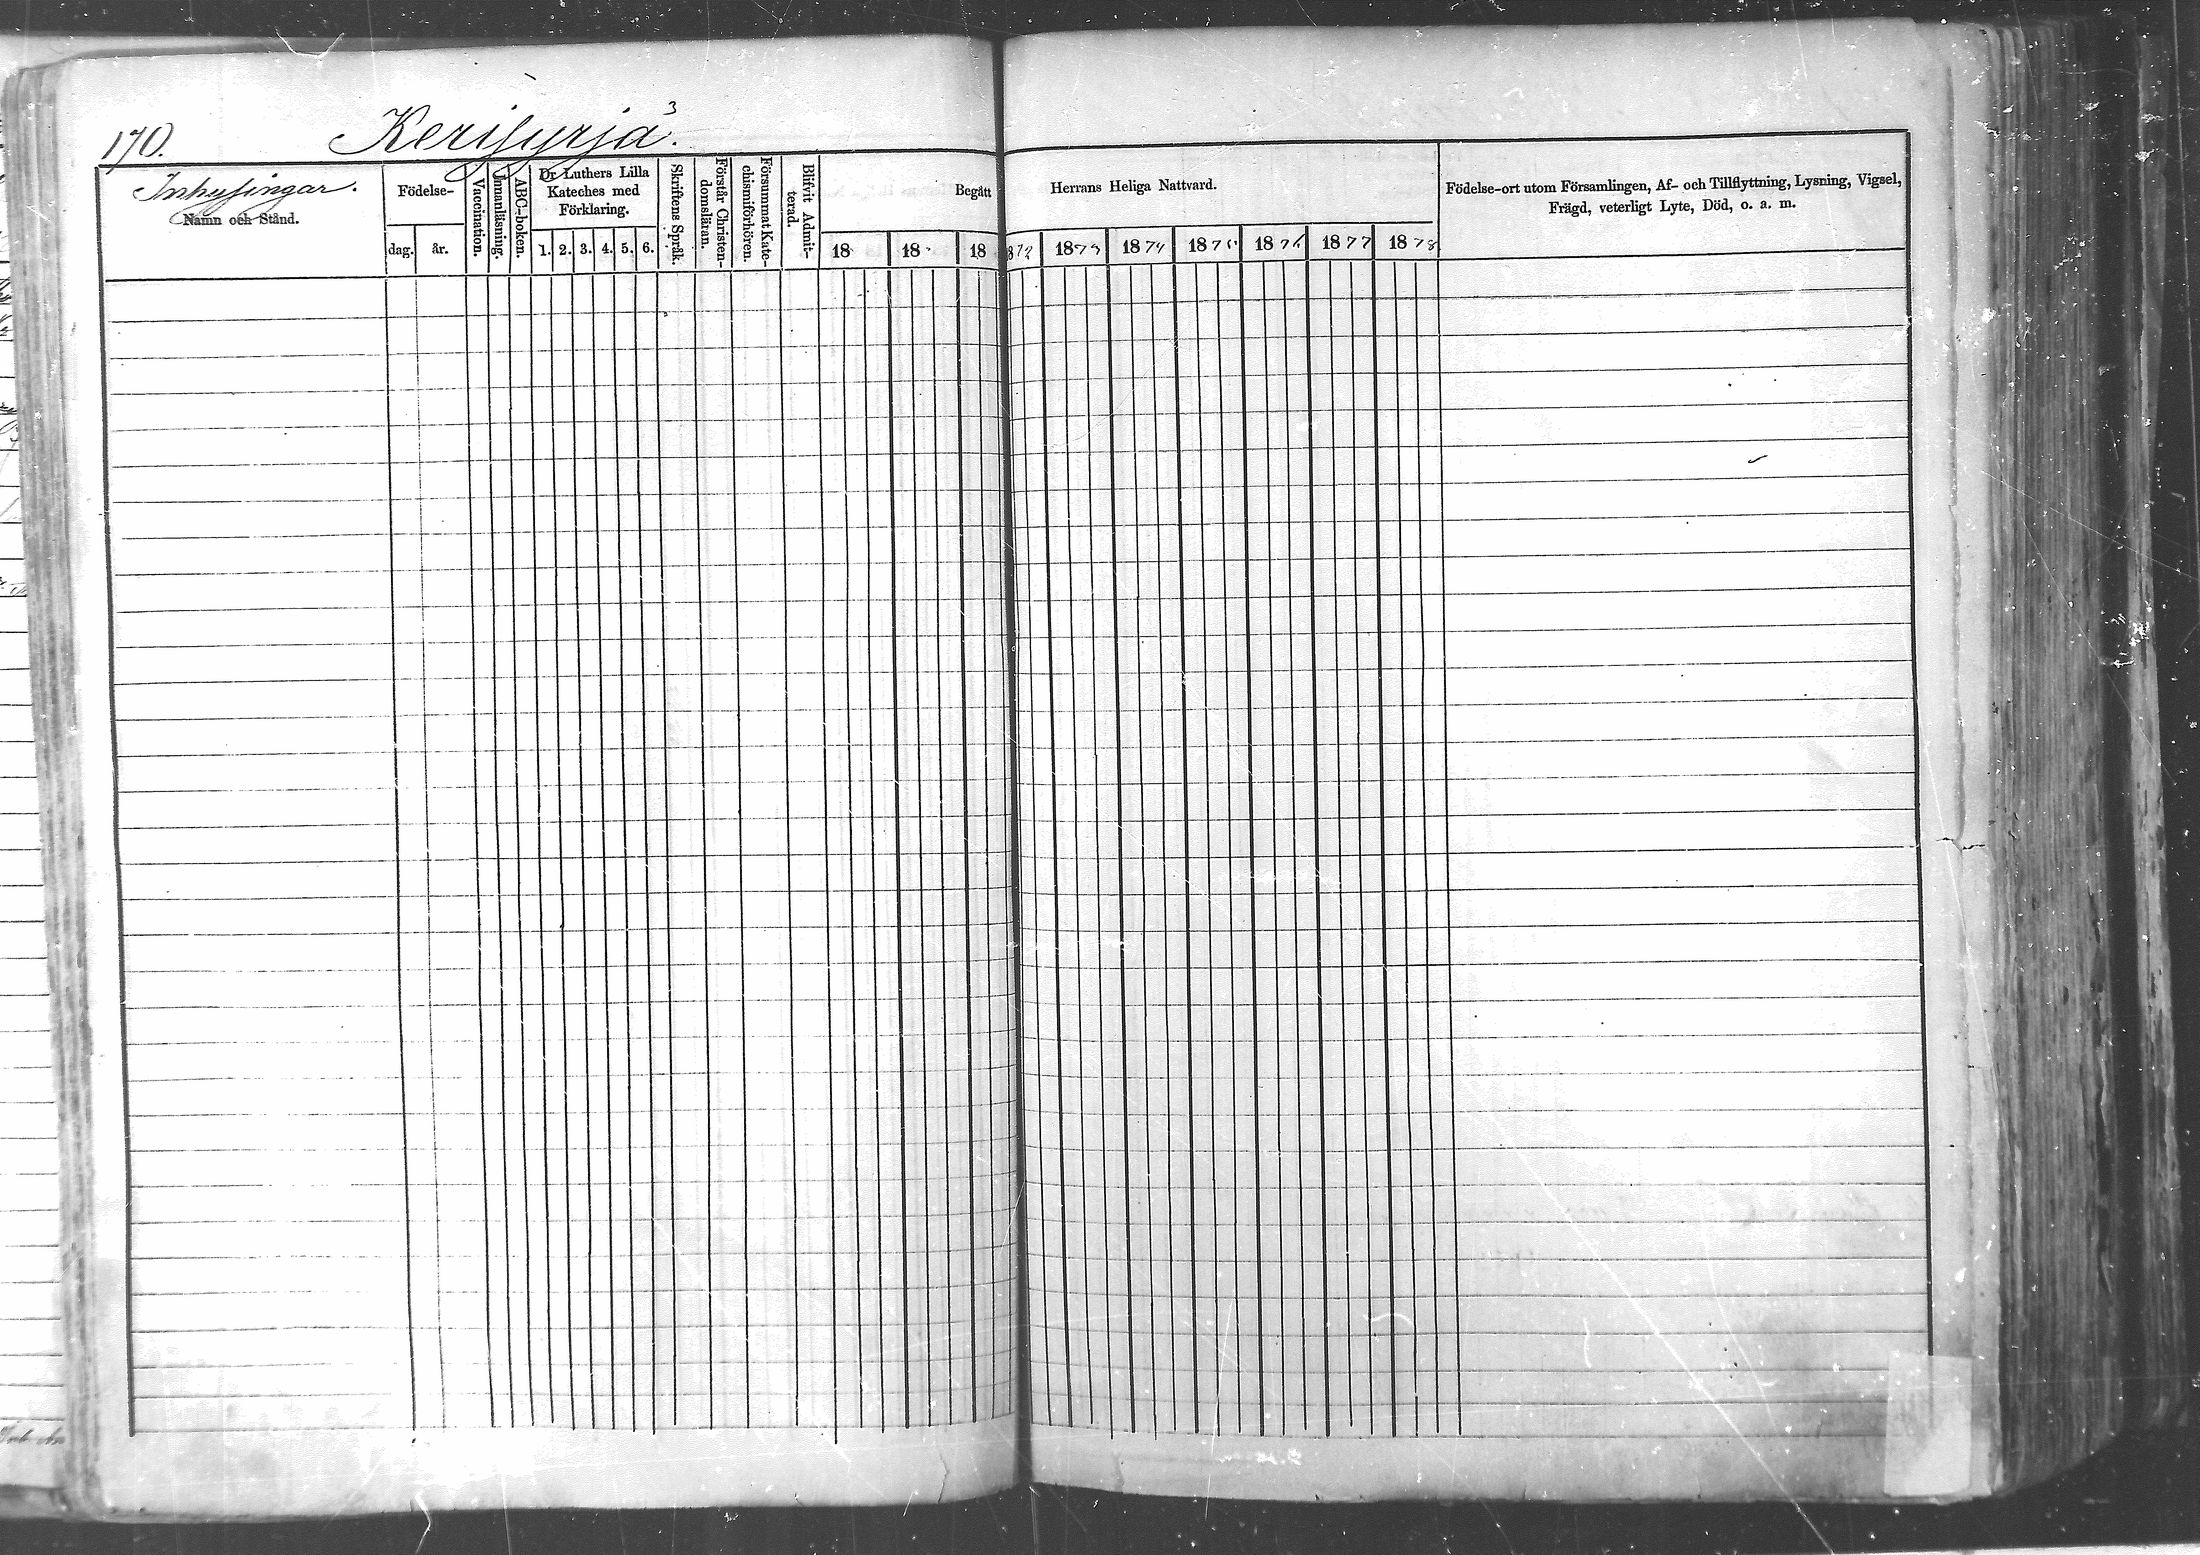 170.
Kerisyrjä.
Inhysingar.
Namn och Stånd.
Födelse-
dag.
år.
Vaccination.
Innanläsning.
ABC-boken.
Dr Luthers Lilla
Kateches med
Förklaring.
1. 2. 3. 4. 5. 6.
Skriftens Språk.
Förstår Christen-
domsläran.
Försummat Kate-
chismiförhören.
Blifvit Admit-
terad.
Begått Herrans Heliga Nattvard.
18 18 18 1873 1874 1875 1876 1877 1878
Födelse-ort utom Församlingen, Af- och Tillflyttning, Lysning, Vigsel,
Frägd, veterligt Lyte, Död, o. a. m.